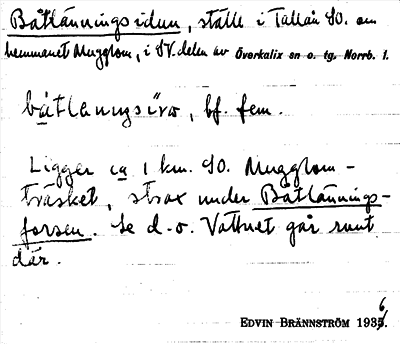 Båtlänningsidun, ställe i Tallån SO. om
hemmanet Mugglom, i SV. delen av Överkalix sn o. tg. Norrb. l.
båtlanıŋsiro, bf. fem.
Ligger ca 1 km. SO. Mugglom-
träsket, strax under Båtlännings-
forsen. Se d. o. Vattnet går runt
där.
EDVIN BRÄNNSTRÖM 1936.